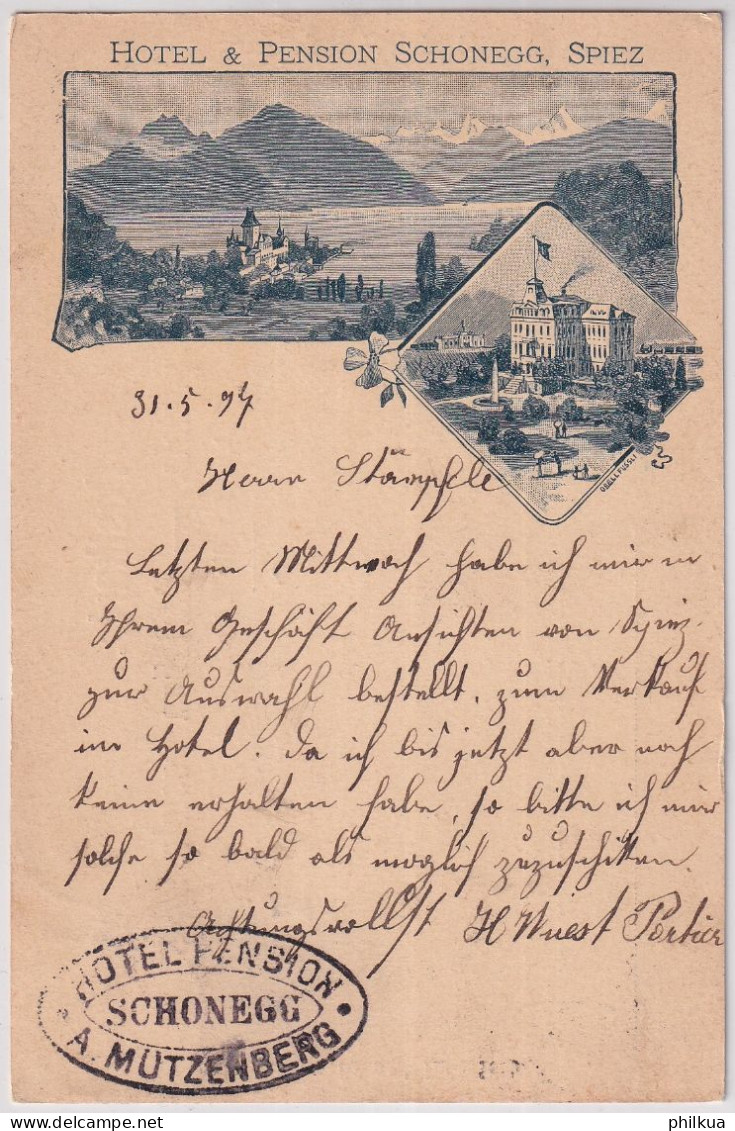 HOTEL & PENSION SCHONEGG, SPIEZ
ORELL FÜSSLI
31.5.97
Herrn Stämpfle
Letzten Mittwoch habe ich mir in
Ihrem Geschäft Ansichten von Spiez
zur Auswahl bestellt, zum Verkauf
im Hotel. Da ich bis jetzt aber noch
keine erhalten habe, so bitte ich mir
solche so bald als möglich zuzuschiken.
Achtungsvollst H Wuest Portier
HOTEL PENSION
SCHONEGG
A. MUTZENBERG
philkua